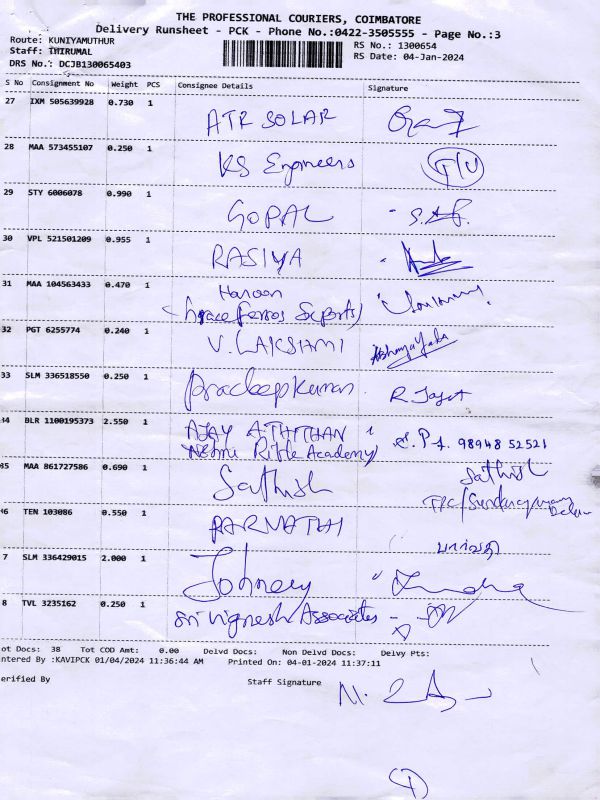 THE PROFESSIONAL COURIERS, COIMBATORE
Delivery Runsheet - PCK - Phone No.:0422-3505555 - Page No.:3
Route: KUNIYAMUTHUR
RS No.: 1300654
Staff: THIRUMAL
RS Date: 04-Jan-2024
DRS No.: DCJB130065403
S No Consignment No Weight PCS Consignee Details Signature
27 IXM 505639928 0.730 1 ATR SOLAR
28 MAA 573455107 0.250 1 KS Engineers
29 STY 6006078 0.990 1 GOPAL
30 VPL 521501209 0.955 1 RASIYA
31 MAA 104563433 0.470 1 Haroon
32 PGT 6255774 0.240 1 V. LAKSHMI
33 SLM 336518550 0.250 1 Pradeep Kumar
34 BLR 1100195373 2.550 1 AJAY ATHITHAN
Rifle Academy) 98948 52521
35 MAA 861727586 0.690 1 Sathish Sathish
36 TEN 103086 0.550 1 PARVATHI
7 SLM 336429015 2.000 1 Johnney
8 TVL 3235162 0.250 1 Sri Vignesh Associates
ot Docs: 38 Tot COD Amt: 0.00 Delvd Docs: Non Delvd Docs: Delvy Pts:
ntered By :KAVIPCK 01/04/2024 11:36:44 AM Printed On: 04-01-2024 11:37:11
erified By Staff Signature